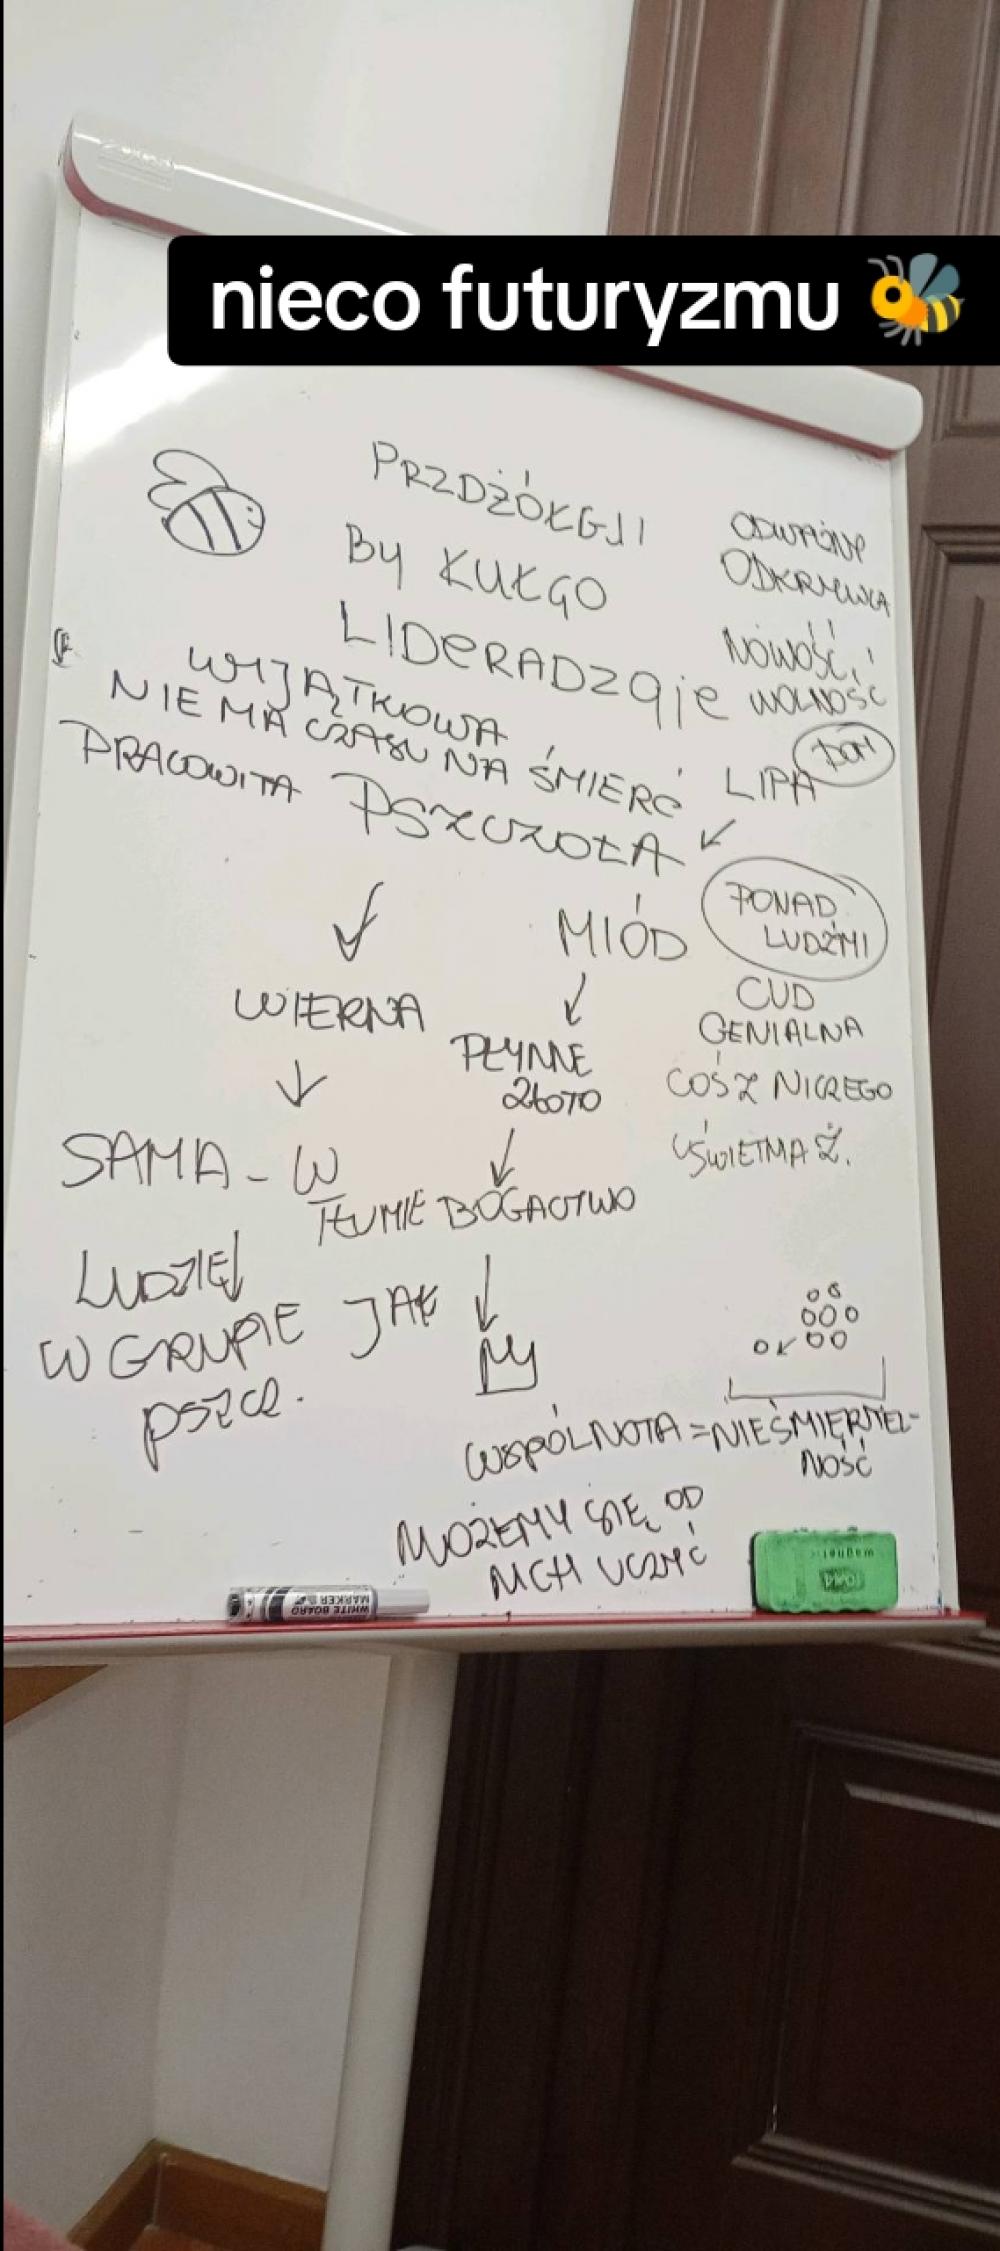 nieco futuryzmu 🐝
PRZDŻÓŁGJI
By KUŁGO
LIDERADZGJE
ODWAŻNA
ODKRYWCA
NOWOŚĆ,
WOLNOŚĆ
WYJĄTKOWA
NIE MA CZASU NA ŚMIERĆ
PRACOWITA PSZCZOŁA
LIPA
DOM
MIÓD
PONAD
LUDŹMI
WIERNA
PŁYNNE
ZŁOTO
CUD
GENIALNA
COŚ Z NICZEGO
SAMA - W
TŁUMIE
BOGACTWO
LUDZIE
W GRUPIE JAK
MY
WSPÓLNOTA = NIEŚMIERTEL-
NOŚĆ
MOŻEMY SIĘ OD
NICH UCZYĆ
WHITE BOARD
MARKER
magnetic